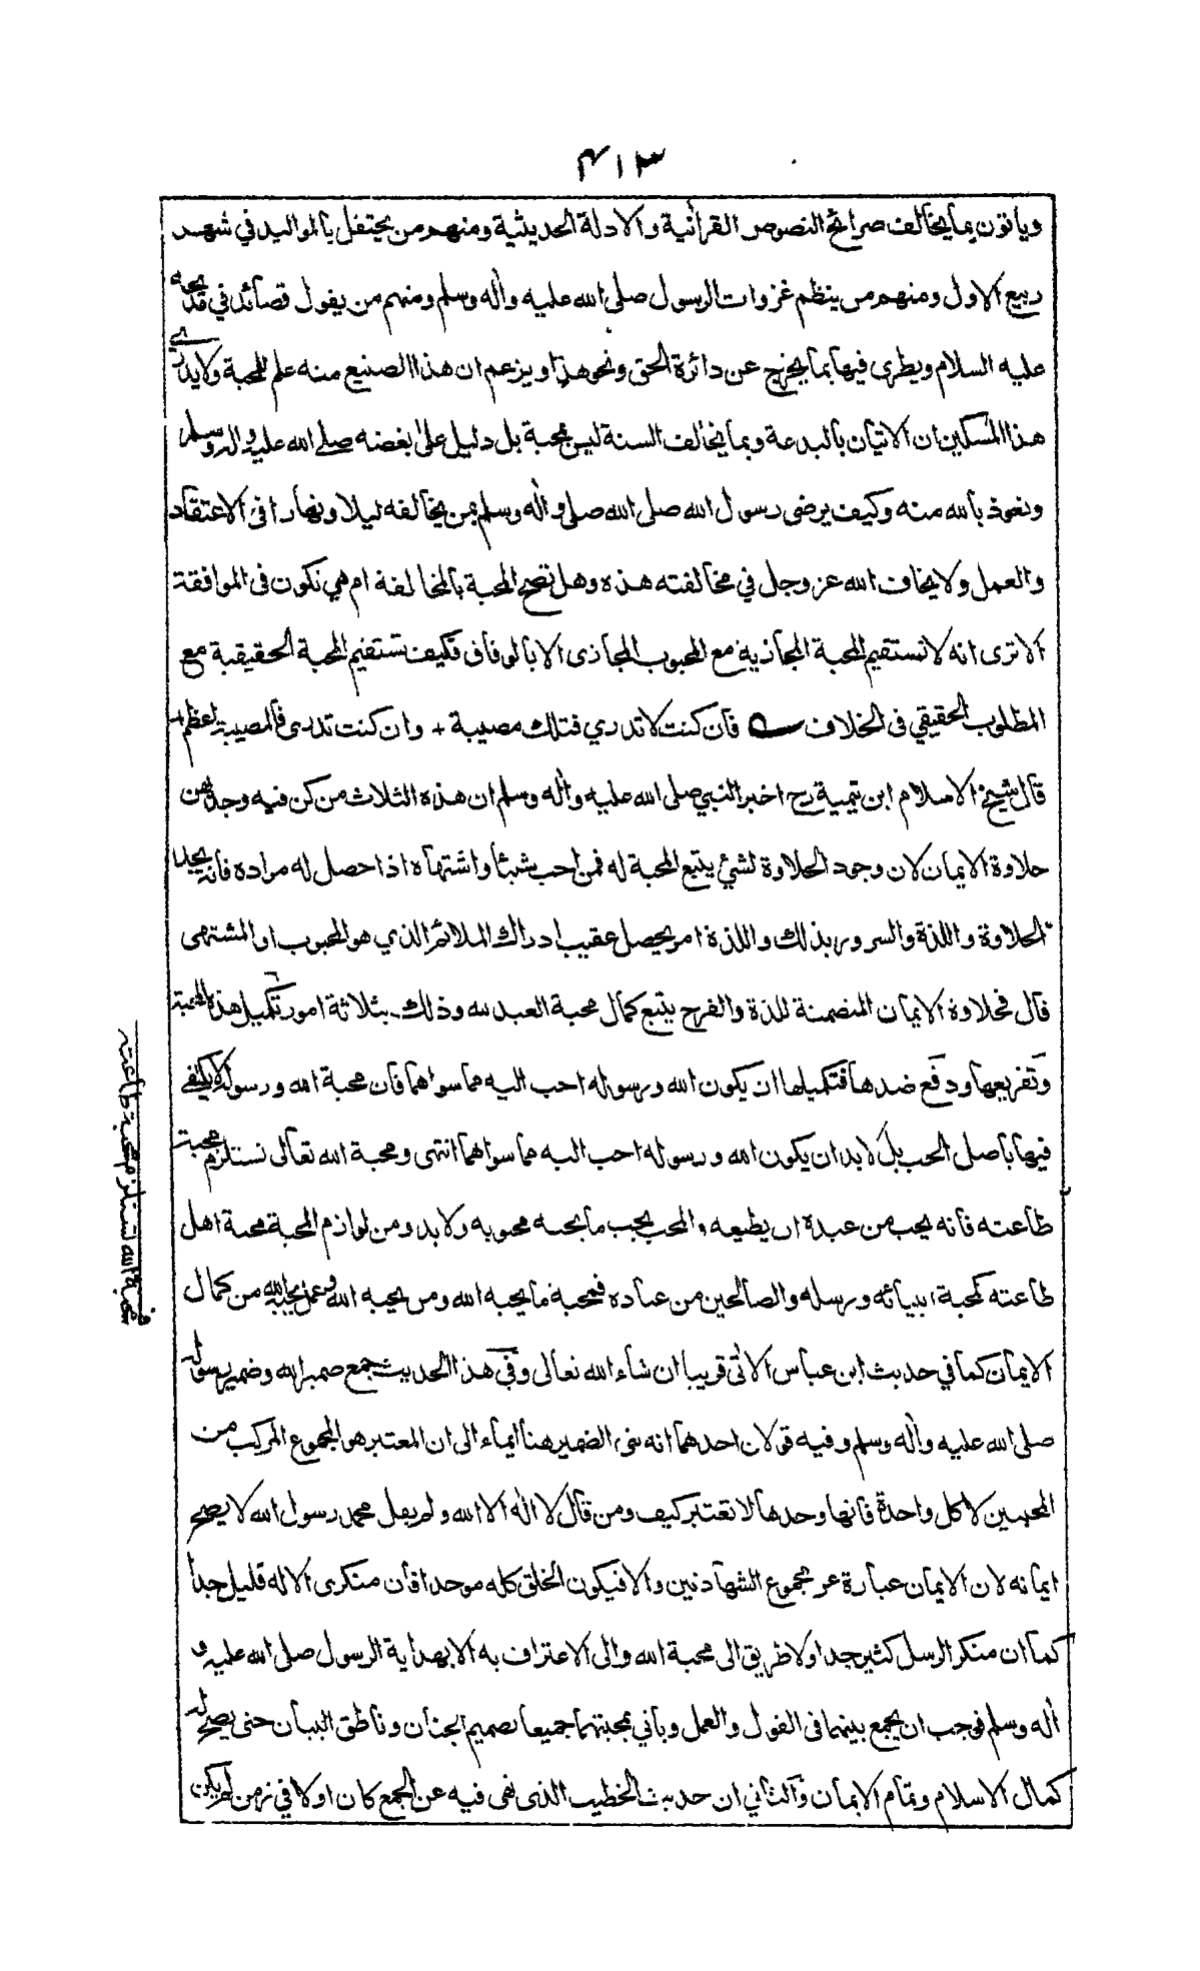 ٤١٣
وياتون بما يخالف صرائح النصوص القرآنية والادلة الحديثية ومنهم من يحتفل بالمواليد في شهر
ربيع الاول ومنهم من ينظم غزوات الرسول صلى الله عليه وآله وسلم ومنهم من يقول قصائد في مدحه
عليه السلام ويطرى فيها بما يخرج عن دائرة الحق ونحو هذا ويزعم ان هذا الصنيع منه علم للمحبة ولا يدري
هذا المسكين ان الاتيان بالبدعة وبما يخالف السنة ليس محبة بل دليل على بغضه صلى الله عليه واله وسلم
ونعوذ بالله منه وكيف يرضى رسول الله صلى الله صلى وآله وسلم بمن يخالفه ليلا ونهارا في الاعتقاد
والعمل ولا يخاف الله عز وجل في مخالفته هذه وهل تصح المحبة بالمخالفة ام هي تكون في الموافقة
الا ترى انه لا تستقيم المحبة المجازية مع المحبوب المجازى الا بالوفاق فكيف تستقيم المحبة الحقيقية مع
المطلوب الحقيقي في الخلاف فان كنت لا تدري فتلك مصيبة + وان كنت تدرى فالمصيبة اعظم +
قال شيخ الاسلام ابن تيمية رح اخبر النبي صلى الله عليه وآله وسلم ان هذه الثلاث من كن فيه وجد بهن
حلاوة الايمان لان وجود الحلاوة لشئ يتبع المحبة له فمن احب شيئا واشتهاه اذا حصل له مراده فانه يجد
الحلاوة واللذة والسرور بذلك واللذة امر يحصل عقيب ادراك الملائم الذي هو المحبوب او المشتهى
قال فحلاوة الايمان المتضمنة للذة والفرح يتبع كمال محبة العبد لله وذلك بثلاثة امور تكميل هذه المحبة
وتفريعها ودفع ضدها فتكميلها ان يكون الله ورسوله احب اليه مما سواهما فان محبة الله ورسوله لا يكتفى
فيها باصل الحب بل لا بد ان يكون الله ورسوله احب اليه مما سواهما انتهى ومحبة الله تعالى تستلزم محبة
طاعته فانه يحب من عبده ان يطيعه والمحب يحب ما يحبه محبوبه ولا بد ومن لوازم المحبة محبة اهل
طاعته كمحبة انبيائه ورسله والصالحين من عباده فمحبة ما يحبه الله ومن يحبه الله وعمل يحبه الله من كمال
الايمان كما في حديث ابن عباس الآتى قريبا ان شاء الله تعالى وفي هذا الحديث جمع ضمير الله وضمير رسوله
صلى الله عليه وآله وسلم وفيه قولان احدهما انه ثنى الضمير هنا ايماء الى ان المعتبر هو المجموع المركب من
المحبتين لا كل واحدة فانها وحدها لا تعتبر كيف ومن قال لا اله الا الله ولم يقل محمد رسول الله لا يصح
ايمانه لان الايمان عبارة عن مجموع الشهادتين والا فيكون الخلق كله موحدا فان منكرى الاله قليل جدا
كما ان منكر الرسل كثير جدا ولا طريق الى محبة الله والى الاعتراف به الا بهداية الرسول صلى الله عليه و
آله وسلم فوجب ان يجمع بينهما في القول والعمل وياتي بمحبتهما جميعا بصميم الجنان وناطق البيان حتى يصح له
كمال الاسلام وتمام الايمان والثاني ان حديث الخطيب الذى نهى فيه عن الجمع كان اولا في زمن لم يكن
محبة الله تستلزم محبة طاعته